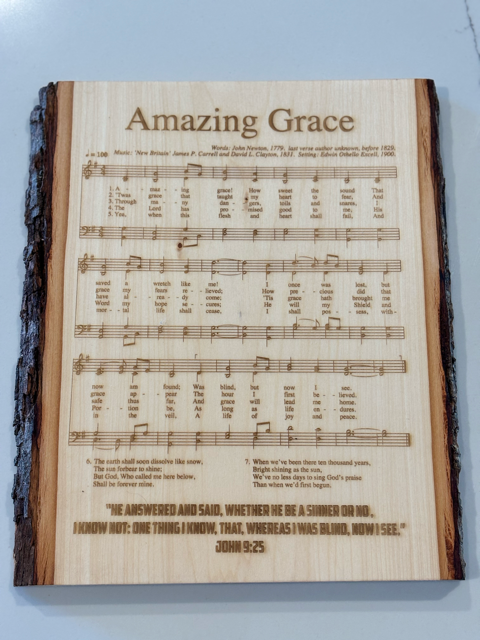 Amazing Grace
Words: John Newton, 1779; last verse author unknown, before 1829.
♩ = 100 Music: 'New Britain' James P. Carrell and David L. Clayton, 1831. Setting: Edwin Othello Excell, 1900.
1. A - maz - ing grace! How sweet the sound That
2. 'Twas grace that taught my heart to fear, And
3. Through ma - ny dan - gers, toils and snares, I
4. The Lord has pro - mised good to me, His
5. Yea, when this flesh and heart shall fail, And
saved a wretch like me! I once was lost, but
grace my fears re - lieved; How pre - cious did that
have al - rea - dy come; 'Tis grace hath brought me
Word my hope se - cures; He will my Shield and
mor - tal life shall cease, I shall pos - sess, with-
now am found; Was blind, but now I see.
grace ap - pear The hour I first be - lieved.
safe thus far, And grace will lead me home.
Por - tion be, As long as life en - dures.
in the veil, A life of joy and peace.
6. The earth shall soon dissolve like snow,
The sun forbear to shine;
But God, Who called me here below,
Shall be forever mine.
7. When we've been there ten thousand years,
Bright shining as the sun,
We've no less days to sing God's praise
Than when we'd first begun.
"HE ANSWERED AND SAID, WHETHER HE BE A SINNER OR NO,
I KNOW NOT: ONE THING I KNOW, THAT, WHEREAS I WAS BLIND, NOW I SEE."
JOHN 9:25